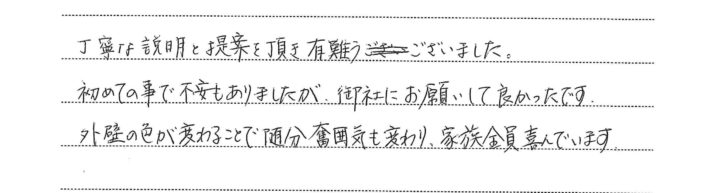 丁寧な説明と提案を頂き有難うございました。
初めての事で不安もありましたが、御社にお願いして良かったです。
外壁の色が変わることで随分奮囲気も変わり、家族全員喜んでいます。